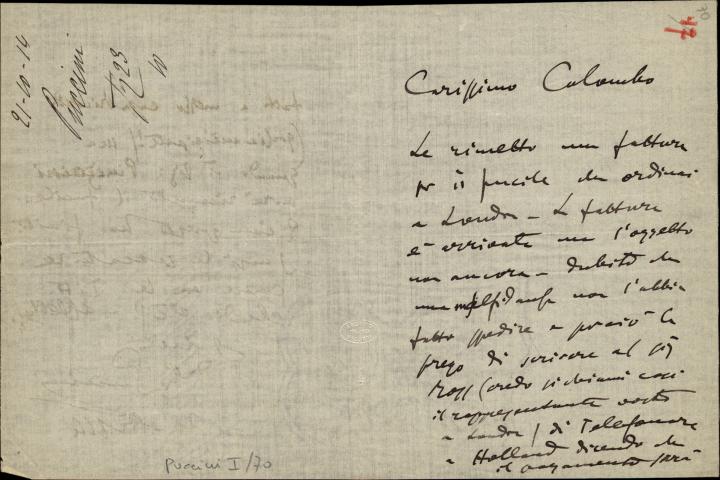 21-10-14
Puccini
I/223
10
70
42
Carissimo Colombo
Le rimetto una fattura
pr il fucile che ordinai
a Londra – La fattura
è arrivata ma l'oggetto
non ancora – dubito che
una malfidanza non l'abbia
fatto spedire e perciò la
prego di scrivere al sig
(credo si chiami così
il rappresentante vostro
a Londra) di telefonare
a Holland dicendo che
il pagamento sarà
Puccini I/70